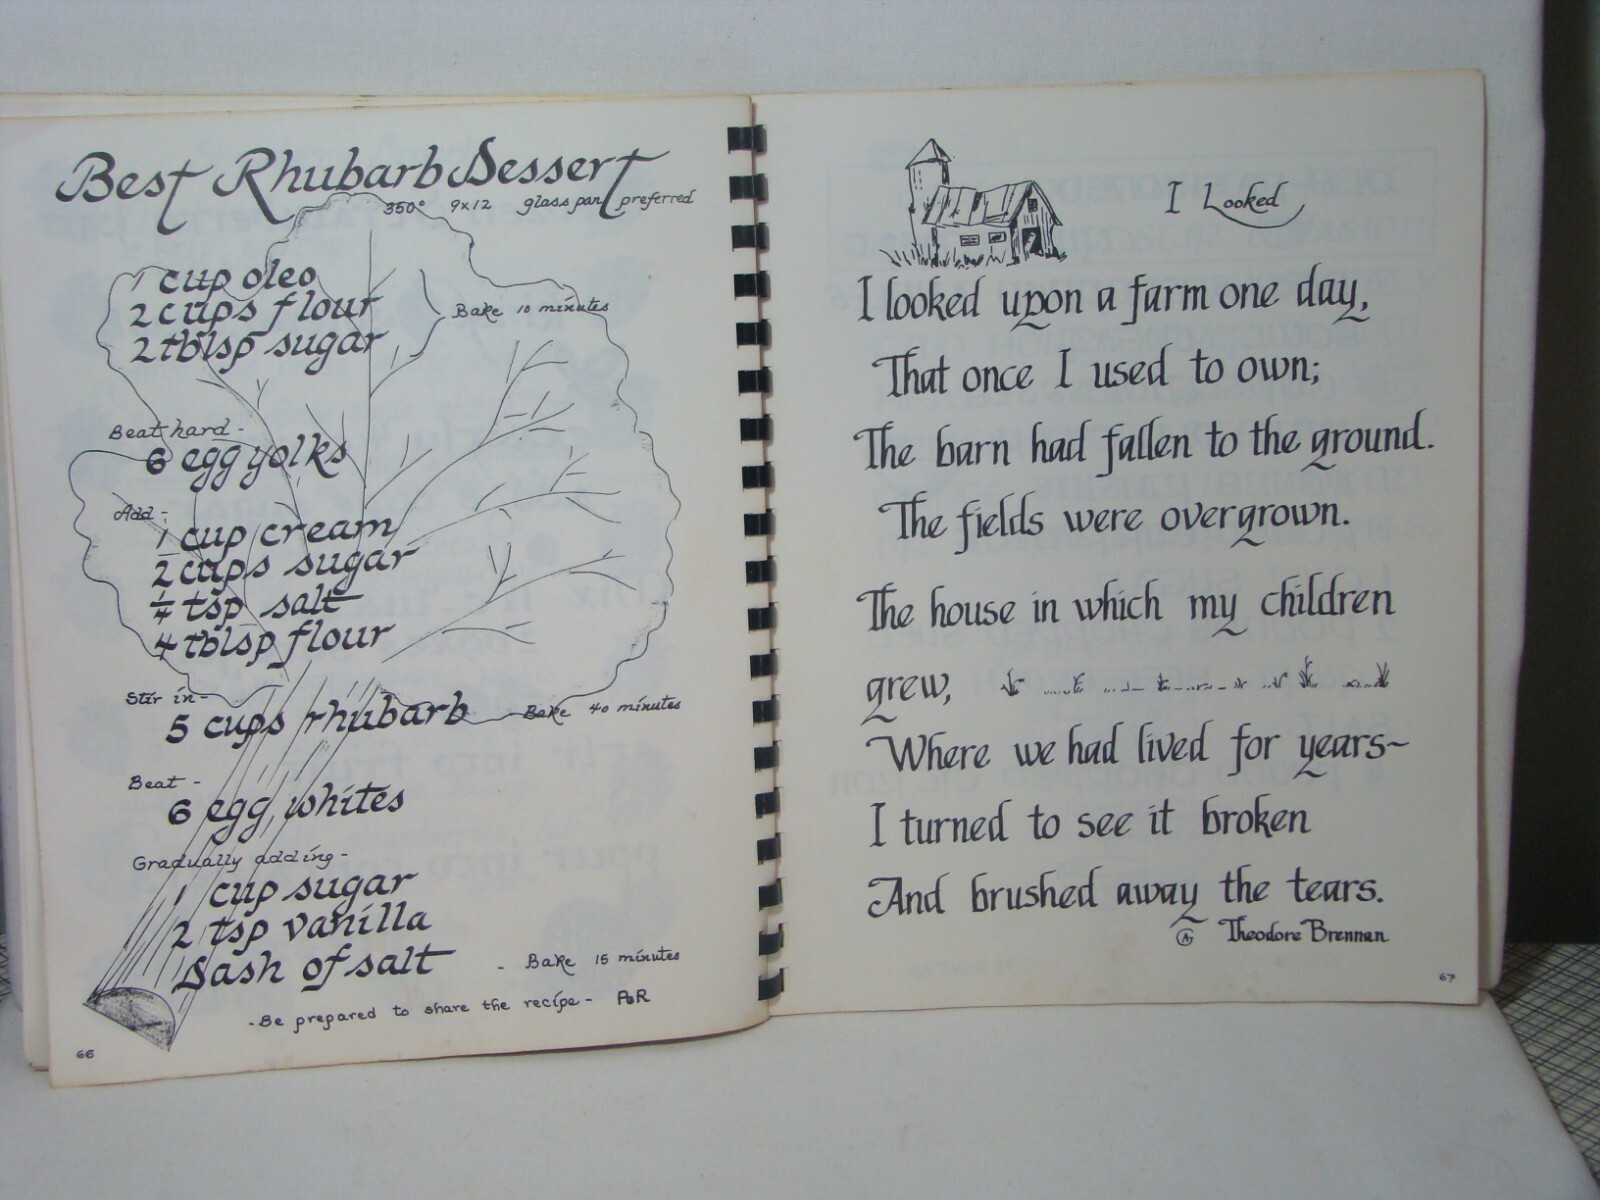 Best Rhubarb Dessert
350° 9x12 glass pan preferred
1 cup oleo
2 cups flour
2 tblsp sugar
Bake 10 minutes
Beat hard -
6 egg yolks
Add -
1 cup cream
2 cups sugar
1/4 tsp salt
4 tblsp flour
Stir in -
5 cups rhubarb
Bake 40 minutes
Beat -
6 egg whites
Gradually adding -
1 cup sugar
2 tsp vanilla
Dash of salt
- Bake 15 minutes
- Be prepared to share the recipe -
66
I Looked
I looked upon a farm one day,
That once I used to own;
The barn had fallen to the ground.
The fields were overgrown.
The house in which my children
grew,
Where we had lived for years~
I turned to see it broken
And brushed away the tears.
Theodore Brennan
67